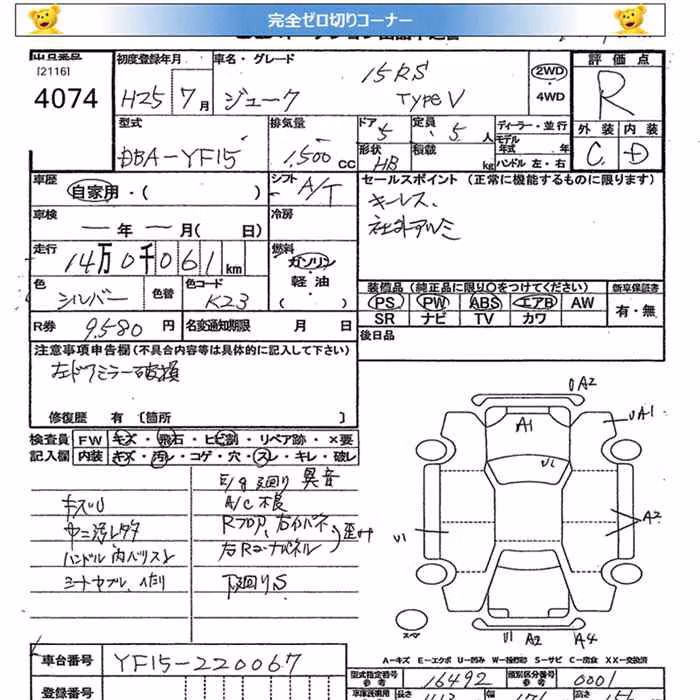 完全ゼロ切りコーナー
出品番号 初度登録年月 車名・グレード 評価点
[2116]
4074 H25 7月 ジューク 15RS TypeV 2WD・4WD R
型式 排気量 ドア 定員 ディーラー・並行 外装 内装
DBA-YF15 1,500 CC 5 5人 モデル年式 年 C D
形状 積載 ハンドル 左・右
HB kg
車歴 自家用・( ) シフト A/T セールスポイント(正常に機能するものに限ります)
車検 ー年ー月( 日) 冷房 キーレス、
社外アルミ
走行 14万0千061km 燃料 ガソリン・軽油・( )
色 シルバー 色替 色コード K23
装備品(純正品に限り○をつけてください) 新車保証書
PS PW ABS エアB AW 有・無
SR ナビ TV カワ
R券 9,580円 名変通知期限 月 日
後日品
注意事項申告欄(不具合内容等は具体的に記入して下さい)
左ドアミラー破損
修復歴 有〔箇所 〕
検査員 FW キズ・飛石・ヒビ割・リペア跡・×要
記入欄 内装 キズ・汚レ・コゲ・穴・スレ・キレ・破レ
E/g廻り 異音
キズU A/C不良
中ニ汚レタタ Rフロア、右インパネ
右Rエンドパネル 歪み
下廻りS
UA2
A1
UA1
U1
A2
U1
スペア
U1 A2 A4
A-キズ E-エクボ U-凹み W-補修跡 S-サビ C-腐食 XX-交換済
車台番号 YF15-220067
型式指定番号 参考 16492 類別区分番号 参考 0001
登録番号
車体諸元用 参考 長さ 幅 高さ